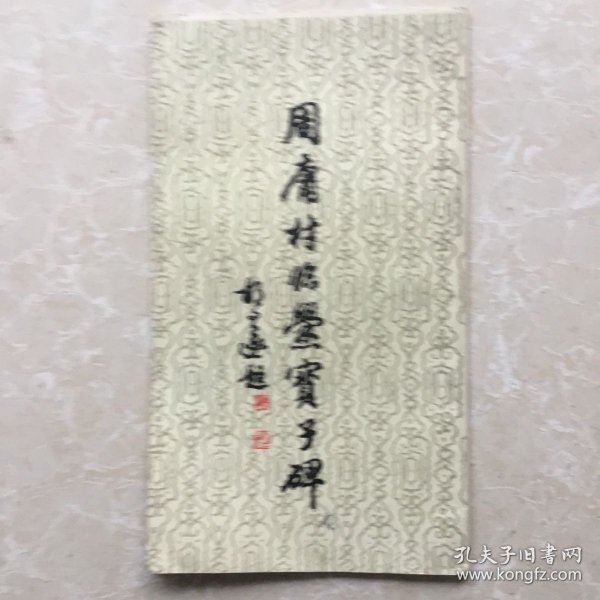 周庸村临爨寶子碑
题
孔夫子旧書网
www.kongfz.com